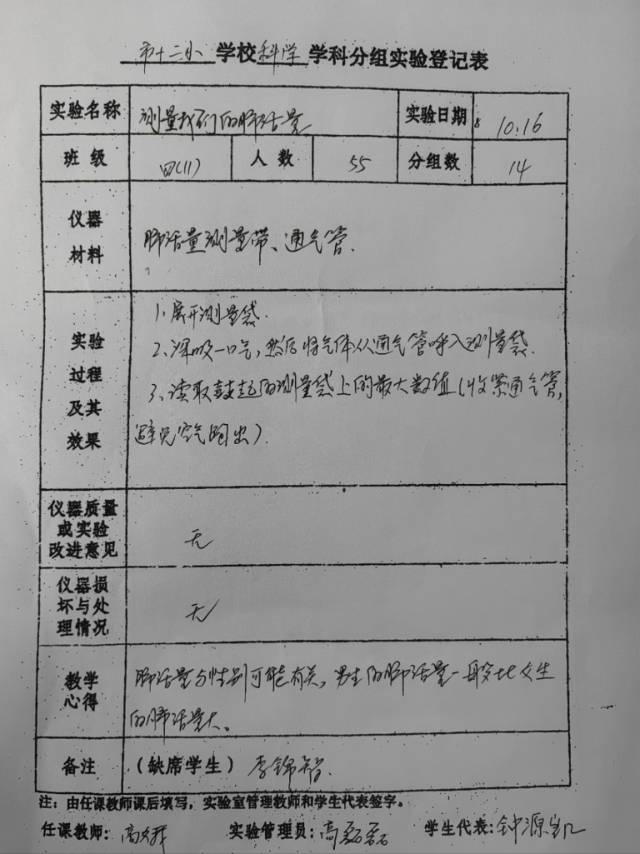 市十二小 学校 科学 学科分组实验登记表
实验名称 测量我们的肺活量 实验日期 10.16
班级 四(11) 人数 55 分组数 14
仪器
材料
肺活量测量带、通气管.
实验
过程
及其
效果
1、展开测量袋.
2、深吸一口气,然后将气体从通气管呼入测量袋.
3、读取鼓起的测量袋上的最大数值(收紧通气管,
避免空气跑出).
仪器质量
或实验
改进意见
无
仪器损
坏与处
理情况
无
教学
心得
肺活量与性别可能有关,男生的肺活量一般比女生
的肺活量大。
备注 (缺席学生) 李锦智.
注:由任课教师课后填写,实验室管理教师和学生代表签字。
任课教师:高 实验管理员:高磊磊 学生代表:钟源凯